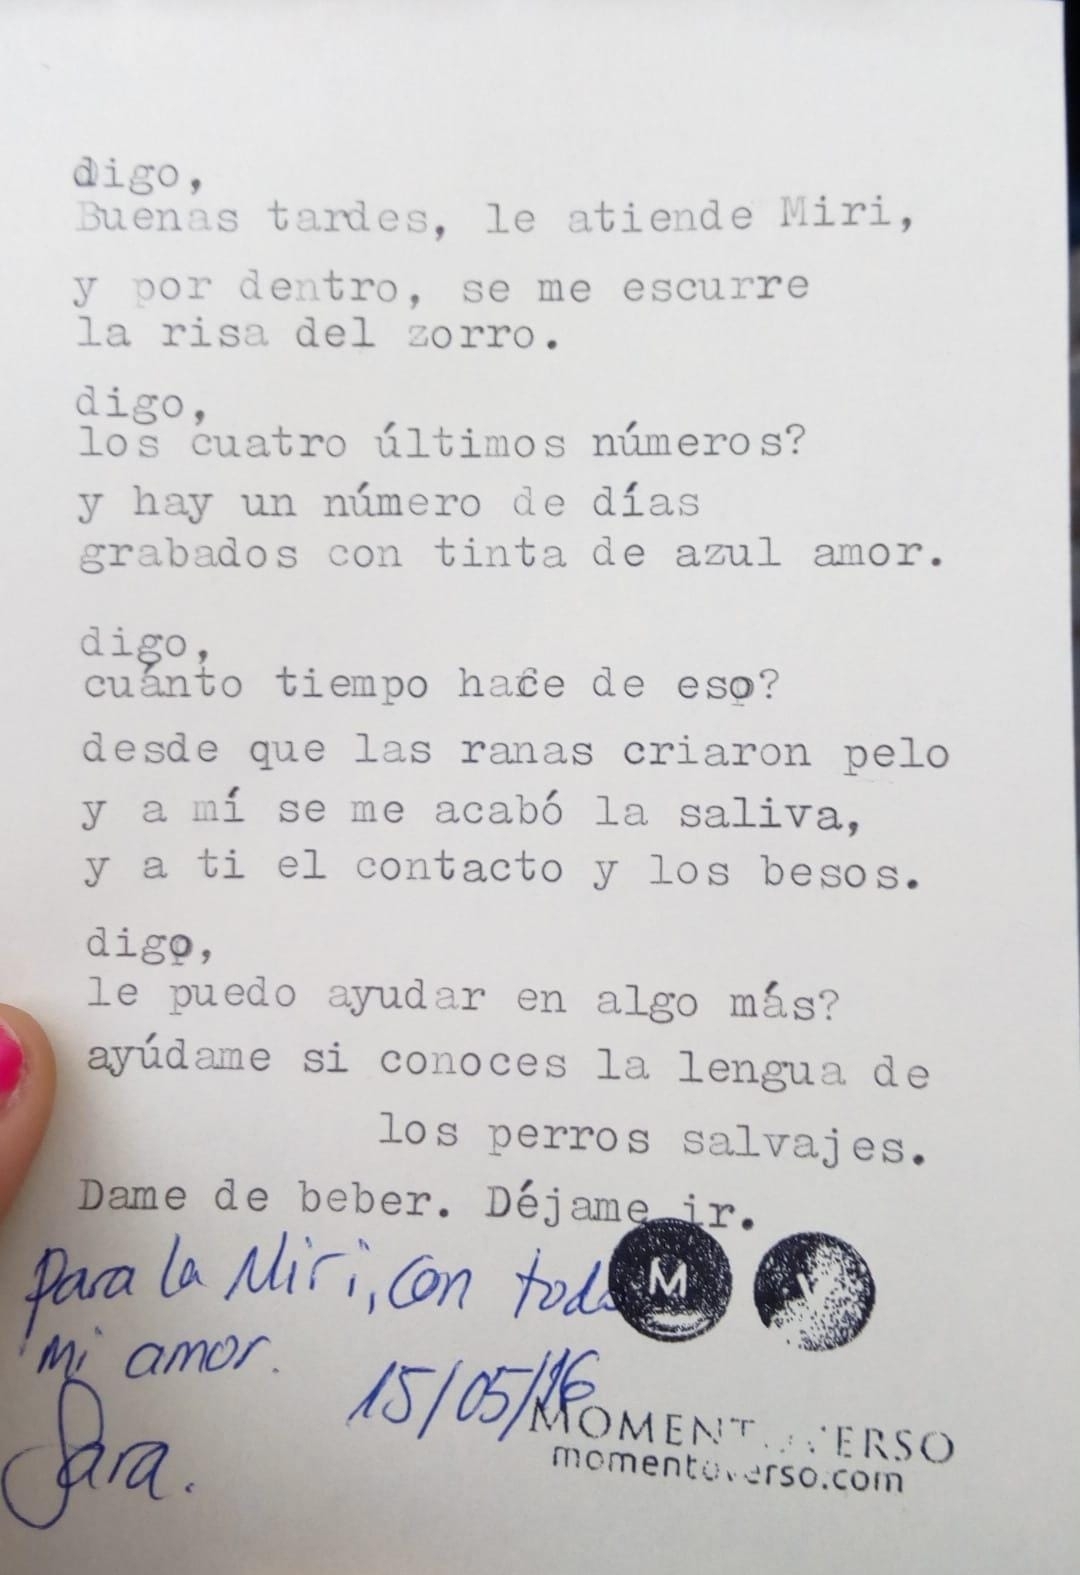 digo,
Buenas tardes, le atiende Miri,
y por dentro, se me escurre
la risa del zorro.
digo,
los cuatro últimos números?
y hay un número de días
grabados con tinta de azul amor.
digo,
cuánto tiempo hace de eso?
desde que las ranas criaron pelo
y a mí se me acabó la saliva,
y a ti el contacto y los besos.
digo,
le puedo ayudar en algo más?
ayúdame si conoces la lengua de
los perros salvajes.
Dame de beber. Déjame ir.
Para la Miri, con todo
M V
mi amor.
15/05/16
Sara.
MOMENTOVERSO
momentoverso.com